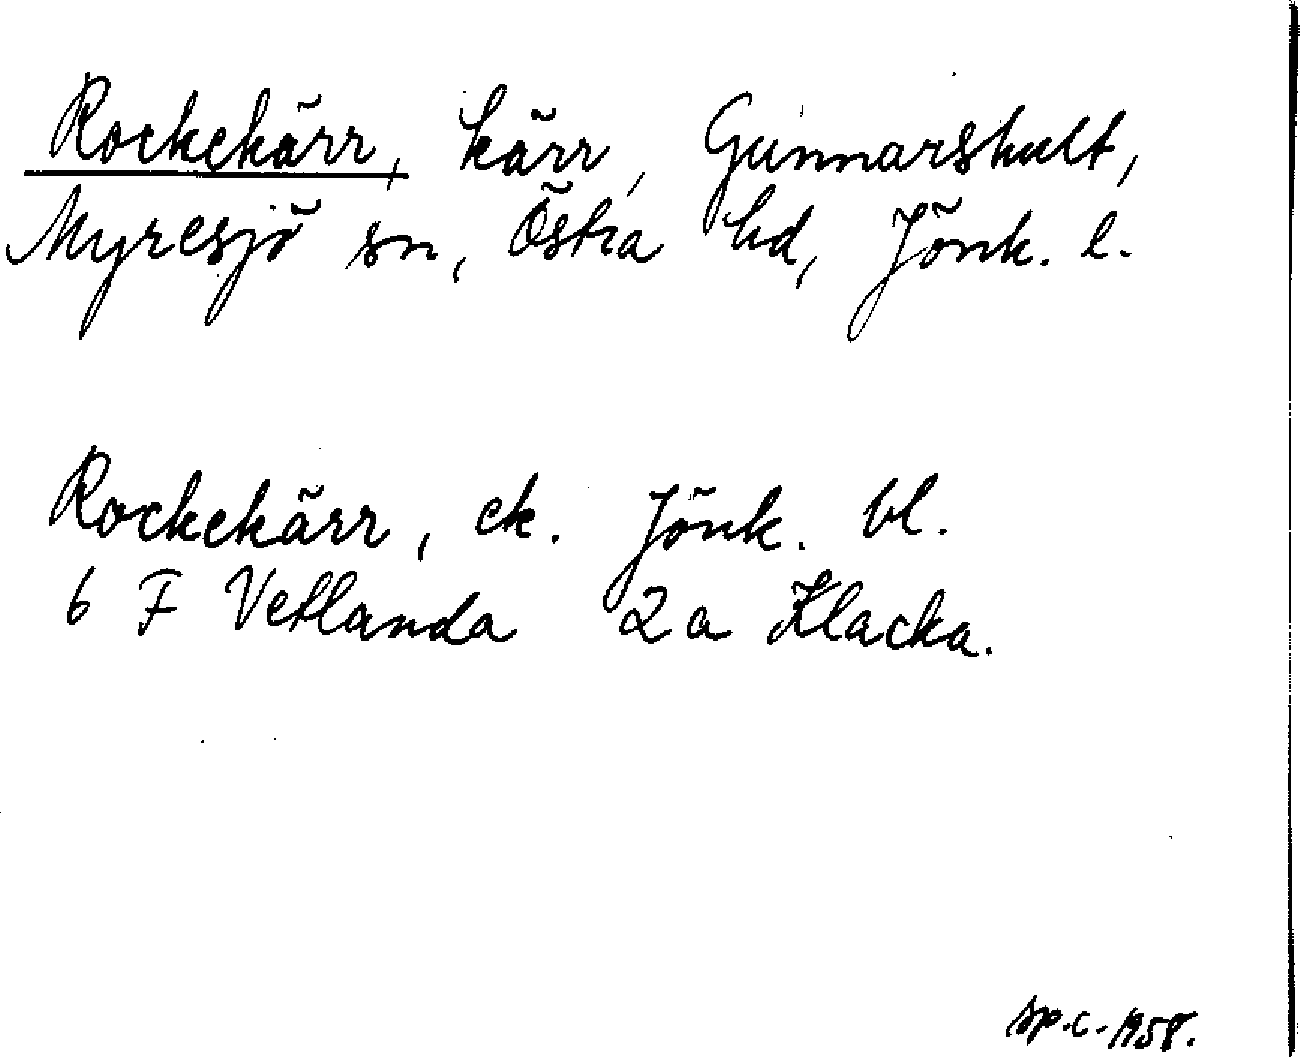 Rockekärr, kärr, Gunnarshult,
Myresjö sn, Östra hd, Jönk. l.
Rockekärr, ek. Jönk. bl.
6 F Vetlanda 2a Klacka.
sp.c. 1958.